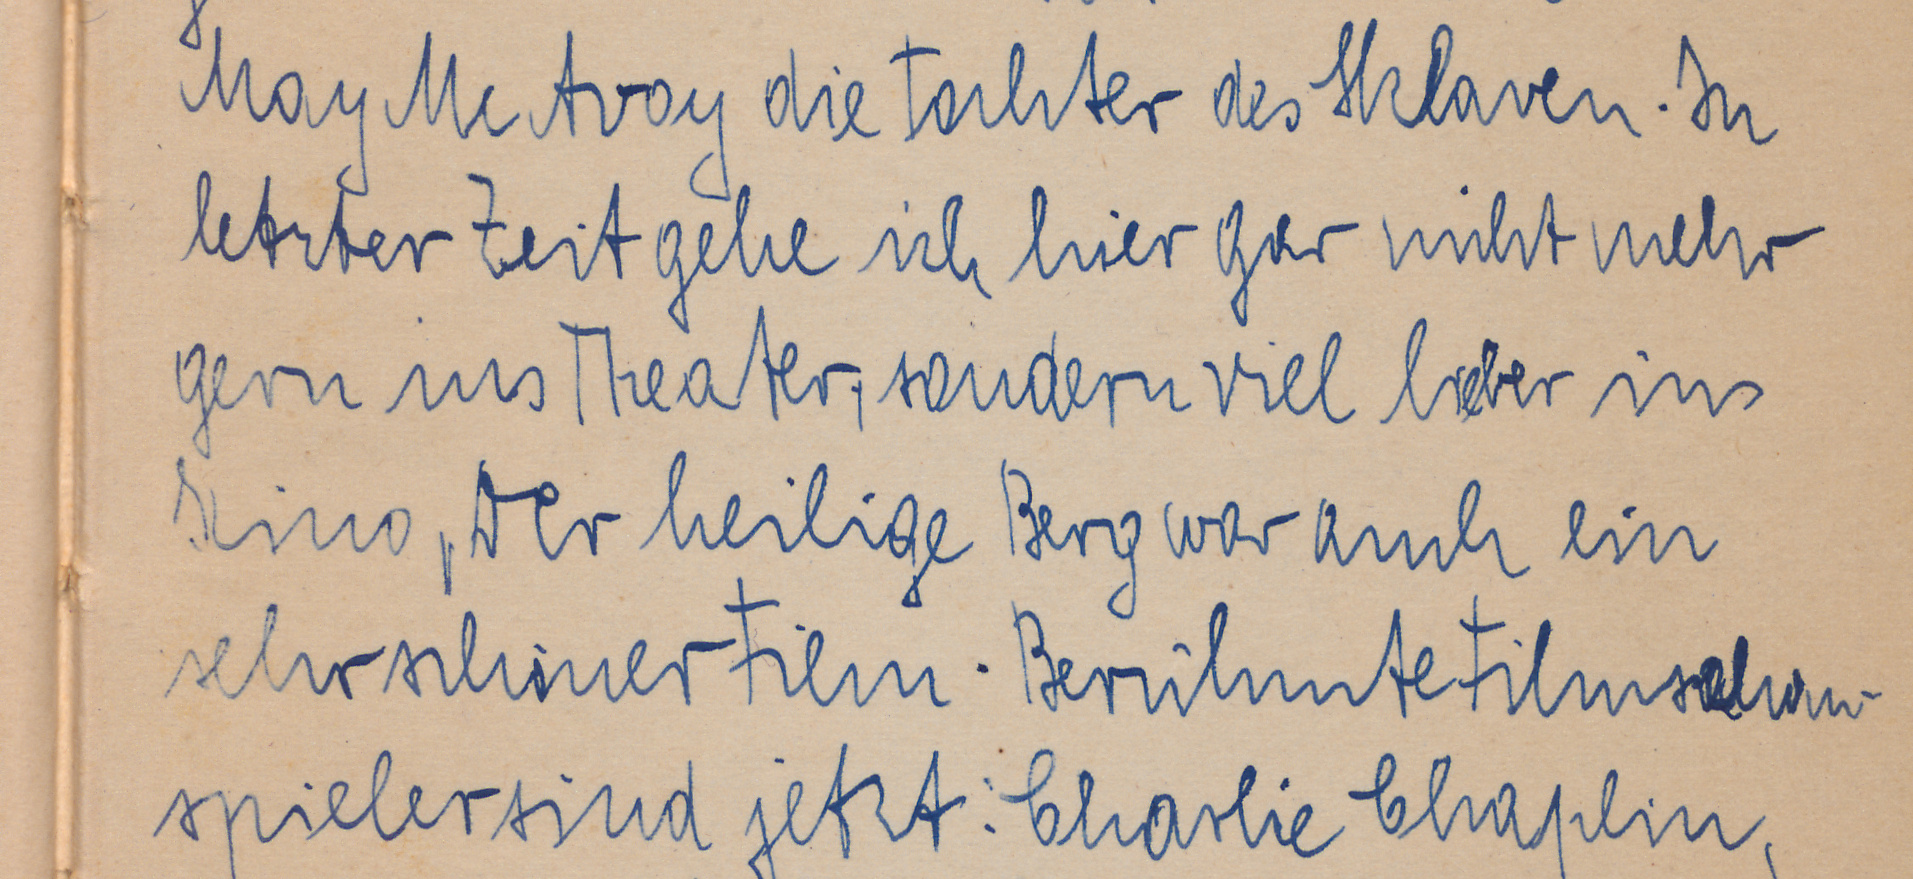 May Mc Avoy die Tochter des Sklaven. In
letzter Zeit gehe ich hier gar nicht mehr
gern ins Theater, sondern viel lieber ins
Kino, „Der heilige Berg war auch ein
sehr schöner Film. Berühmte Filmschau-
spieler sind jetzt: Charlie Chaplin,